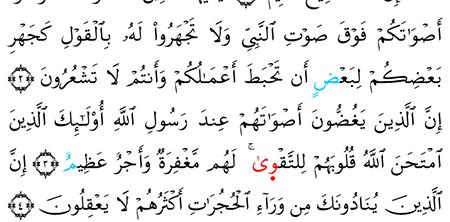 أَصْوَٰتَكُمْ فَوْقَ صَوْتِ النَّبِيِّ وَلَا تَجْهَرُوا۟ لَهُۥ بِالْقَوْلِ كَجَهْرِ
بَعْضِكُمْ لِبَعْضٍ أَن تَحْبَطَ أَعْمَٰلُكُمْ وَأَنتُمْ لَا تَشْعُرُونَ ﴿٢﴾
إِنَّ الَّذِينَ يَغُضُّونَ أَصْوَٰتَهُمْ عِندَ رَسُولِ اللَّهِ أُو۟لَٰٓئِكَ الَّذِينَ
امْتَحَنَ اللَّهُ قُلُوبَهُمْ لِلتَّقْوِىٰ ۚ لَهُم مَّغْفِرَةٌ وَأَجْرٌ عَظِيمٌ ﴿٣﴾ إِنَّ
الَّذِينَ يُنَادُونَكَ مِن وَرَآءِ الْحُجُرَٰتِ أَكْثَرُهُمْ لَا يَعْقِلُونَ ﴿٤﴾